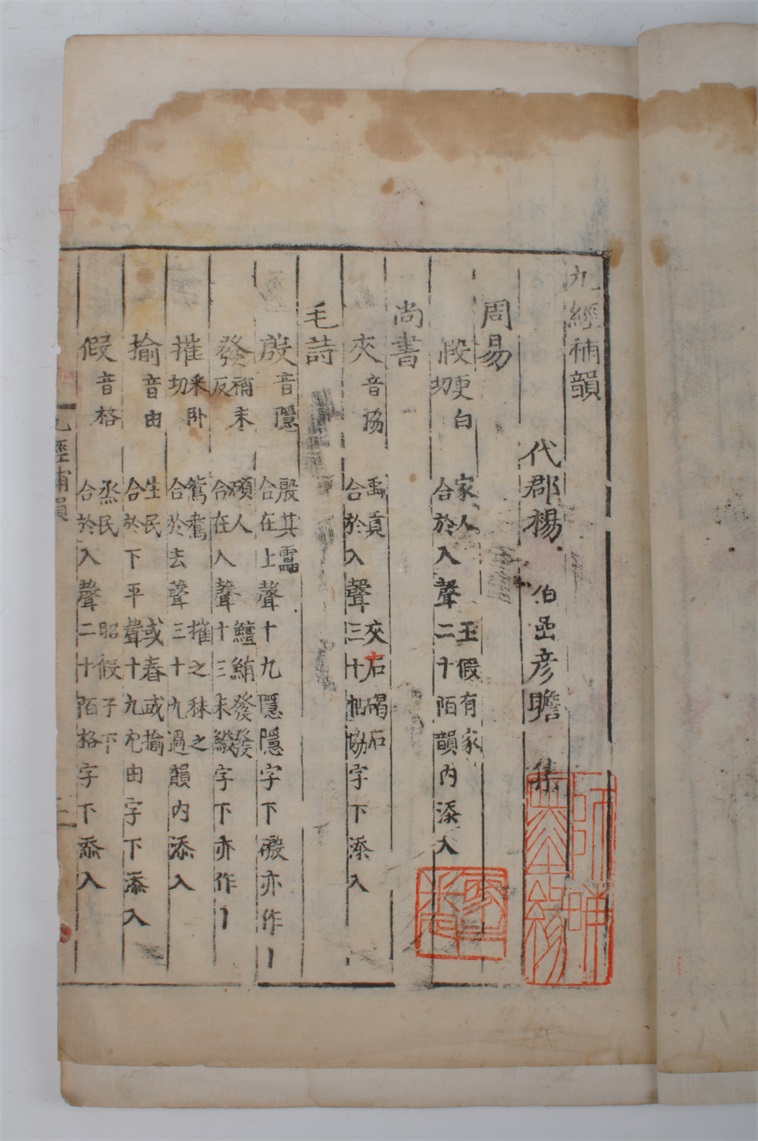 九經補韻
代郡楊 伯嵒彦瞻 集
周易
假更白切 家人 王假有家 合於入聲二十陌韻内添入
尚書
夾音協 禹貢 夾右碣石 合於入聲三十帖協字下添入
毛詩
殷音隱 殷其靁 合在上聲十九隱隱字下 磤亦作丨
發補末反 碩人 鱣鮪發發 合在入聲十三末緞字下亦作丨
摧采卧切 鴛鴦 摧之秣之 合於去聲三十九過韻内添入
揄音由 生民 或舂或揄 合於下平聲十九尤由字下添入
假音格 烝民 昭假于下 合於入聲二十陌格字下添入
九經補韻